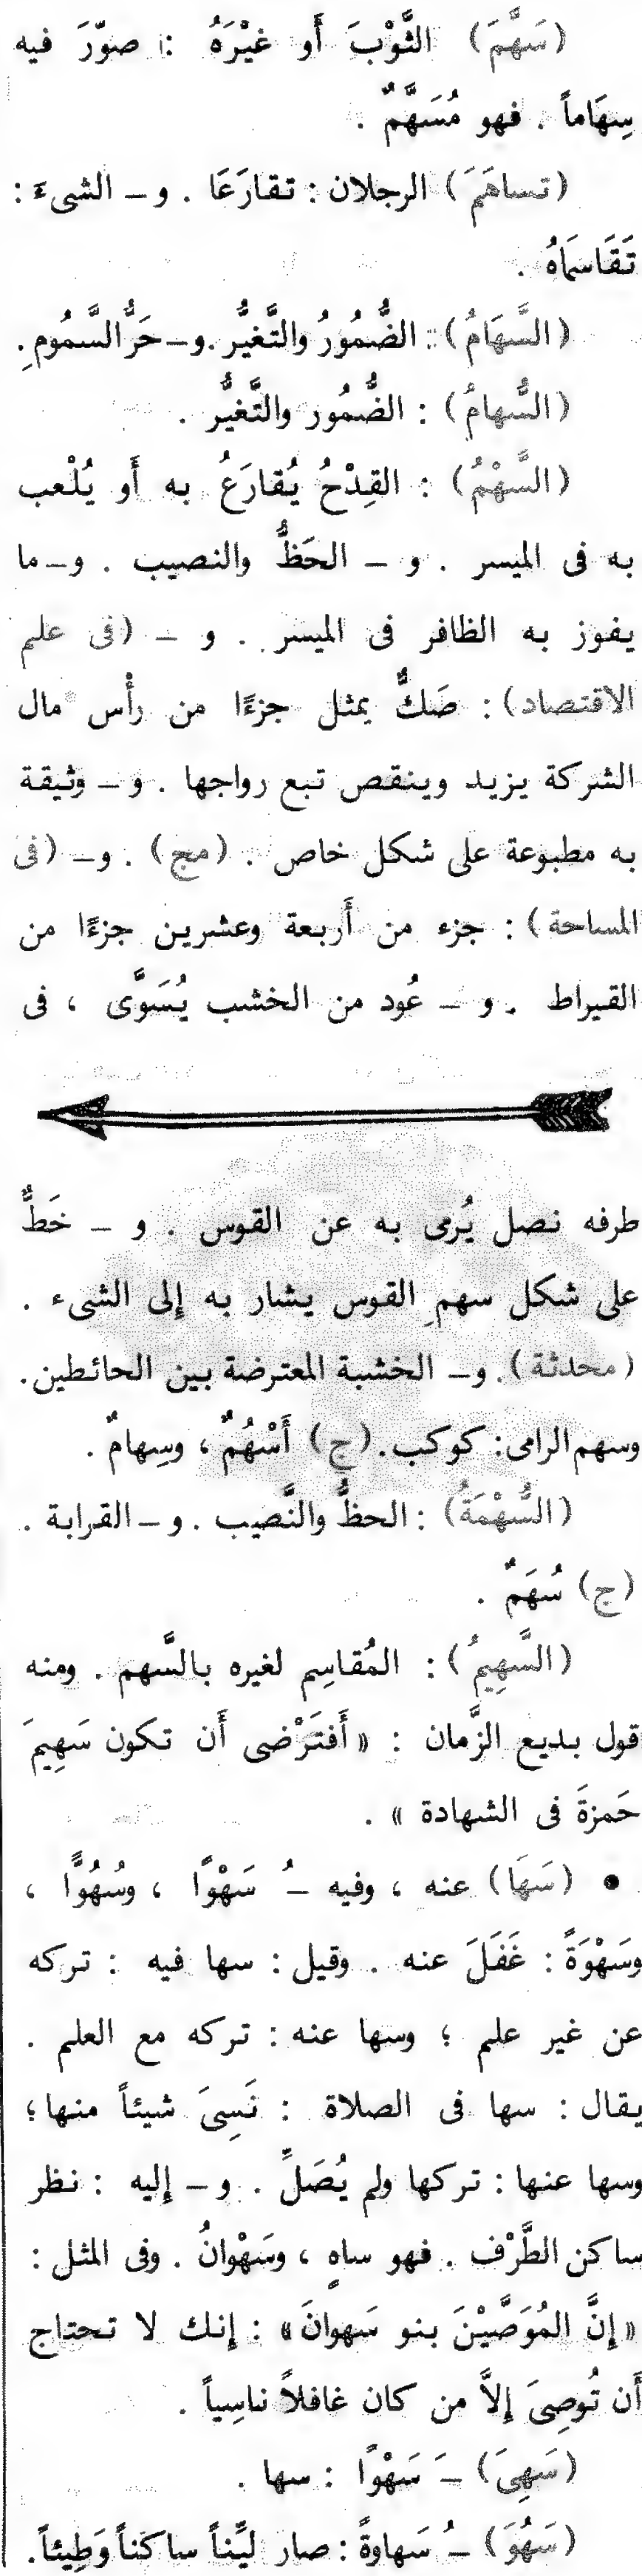 (سَهَّمَ) الثَّوْبَ أَو غيْرَهُ : صوّرَ فيه
سِهَاماً . فهو مُسَهَّمٌ .
(تساهَمَ) الرجلان : تقارَعَا . و – الشىءَ :
تَقَاسَمَاهُ .
(السَّهَامُ) : الضُّمُورُ والتَّغيُّر . و – حَرُّ السَّمُومِ .
(السُّهامُ) : الضُّمُور والتَّغيُّر .
(السَّهْمُ) : القِدْحُ يُقارَعُ به أَو يُلْعب
به فى الميسر . و – الحَظُّ والنصيب . و – ما
يفوز به الظافر فى الميسر . و – (فى علم
الاقتصاد) : صَكٌّ يمثل جزءًا من رأْس مال
الشركة يزيد وينقص تبع رواجها . و – وثيقة
به مطبوعة على شكل خاص . (مج) . و – (فى
المساحة) : جزء من أَربعة وعشرين جزءًا من
القيراط . و – عُود من الخشب يُسَوَّى ، فى
طرفه نصل يُرمى به عن القوس . و – خَطٌّ
على شكل سهمِ القوس يشار به إِلى الشىء .
(محدثة) . و – الخشبة المعترضة بين الحائطين .
وسهم الرامى : كوكب . (ج) أَسْهُمٌ ، وسِهامٌ .
(السُّهْمَةُ) : الحظُّ والنَّصيب . و – القرابة .
(ج) سُهَمٌ .
(السَّهِيمُ) : المُقاسِم لغيره بالسَّهم . ومنه
قول بديع الزَّمان : « أَفتَرْضى أَن تكون سَهِيمَ
حَمزةَ فى الشهادة » .
• (سَهَا) عنه ، وفيه –ُ سَهْوًا ، وسُهُوًّا ،
وسَهْوَةً : غَفَلَ عنه . وقيل : سها فيه : تركه
عن غير علم ؛ وسها عنه : تركه مع العلم .
يقال : سها فى الصلاة : نَسِىَ شيئاً منها ؛
وسها عنها : تركها ولم يُصَلِّ . و – إِليه : نظر
ساكن الطَّرْف . فهو ساهٍ ، وسَهْوانُ . وفى المثل :
« إِنَّ المُوَصَّيْنَ بنو سَهوانَ » : إِنك لا تحتاج
أَن تُوصِىَ إِلاَّ من كان غافلاً ناسِياً .
(سَهِىَ) –َ سَهْوًا : سها .
(سَهُوَ) –ُ سَهاوةً : صار ليِّناً ساكناً وَطِيئاً .